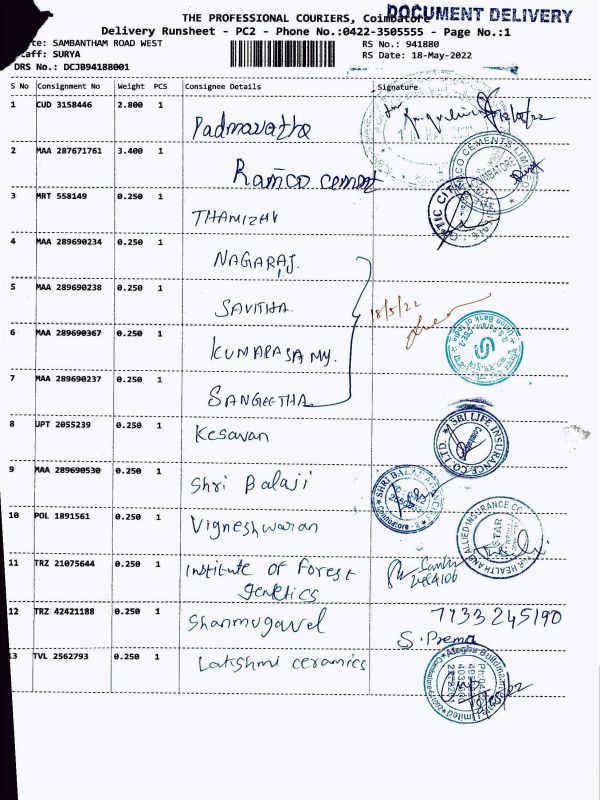 DOCUMENT DELIVERY
THE PROFESSIONAL COURIERS, Coimbatore
Delivery Runsheet - PC2 - Phone No.:0422-3505555 - Page No.:1
SAMBANTHAM ROAD WEST
RS No.: 941880
SURYA
RS Date: 18-May-2022
DRS No.: DCJB94188001
S No Consignment No Weight PCS Consignee Details Signature
1 CUD 3158446 2.800 1 Padmavatha
2 MAA 287671761 3.400 1 Ramco cement
3 MRT 558149 0.250 1 THAMIZHV
4 MAA 289690234 0.250 1 NAGARAJ.
5 MAA 289690238 0.250 1 SAVITHA.
18/5/22
6 MAA 289690367 0.250 1 KUMARASAMY.
7 MAA 289690237 0.250 1 SANGEETHA.
8 UPT 2055239 0.250 1 Kesavan
SBI LIFE INSURANCE CO LTD.
9 MAA 289690530 0.250 1 Shri Balaji
10 POL 1891561 0.250 1 Vigneshwaran
STAR HEALTH AND ALLIED INSURANCE CO
11 TRZ 21075644 0.250 1 Institute of Forest
genetics
12 TRZ 42421188 0.250 1 Shanmugavel 7933245190
S. Prema
13 TVL 2562793 0.250 1 Lakshmi ceramics